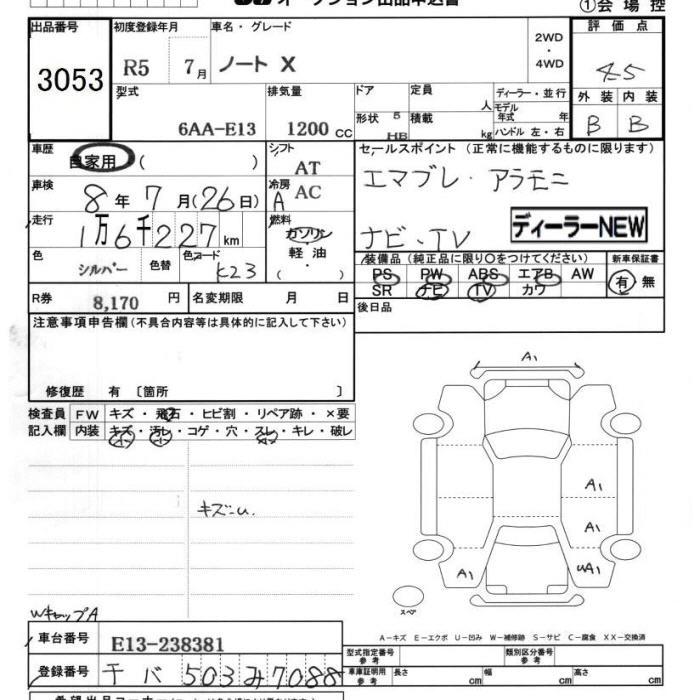 ①会 場 控
出品番号
3053
初度登録年月
R5 7月
車名・グレード
ノート X
2WD
・
4WD
評 価 点
4.5
外 装 内 装
B B
型式
6AA-E13
排気量
1200 cc
ドア
形状 5
HB
定員
人
積載
kg
ディーラー・並行
モデル
年式 年
ハンドル 左・右
車歴
自家用 ( )
シフト
AT
車検
8年 7月(26日)
冷房
A AC
走行
1万6千227km
燃料
ガソリン
軽 油
( )
色
シルバー
色替
色コード
K23
R券
8,170 円
名変期限 月 日
セールスポイント (正常に機能するものに限ります)
エマブレ・アラモニ
ナビ・TV
ディーラーNEW
装備品(純正品に限り○をつけてください)
PS PW ABS エアB AW
SR ナビ TV カワ
新車保証書
有・無
後日品
注意事項申告欄(不具合内容等は具体的に記入して下さい)
修復歴 有 〔箇所 〕
検査員
記入欄
FW キズ・飛石・ヒビ割・リペア跡・×要
内装 キズ・汚レ・コゲ・穴・スレ・キレ・破レ
キズ小
WキャップA
A1
A1
A1
A1
UA1
スペア
A-キズ E-エクボ U-凹み W-補修跡 S-サビ C-腐食 XX-交換済
車台番号 E13-238381
登録番号 千バ 503 み7088
型式指定番号
参 考
類別区分番号
参 考
車庫証明用
参 考
長さ cm 幅 cm 高さ cm